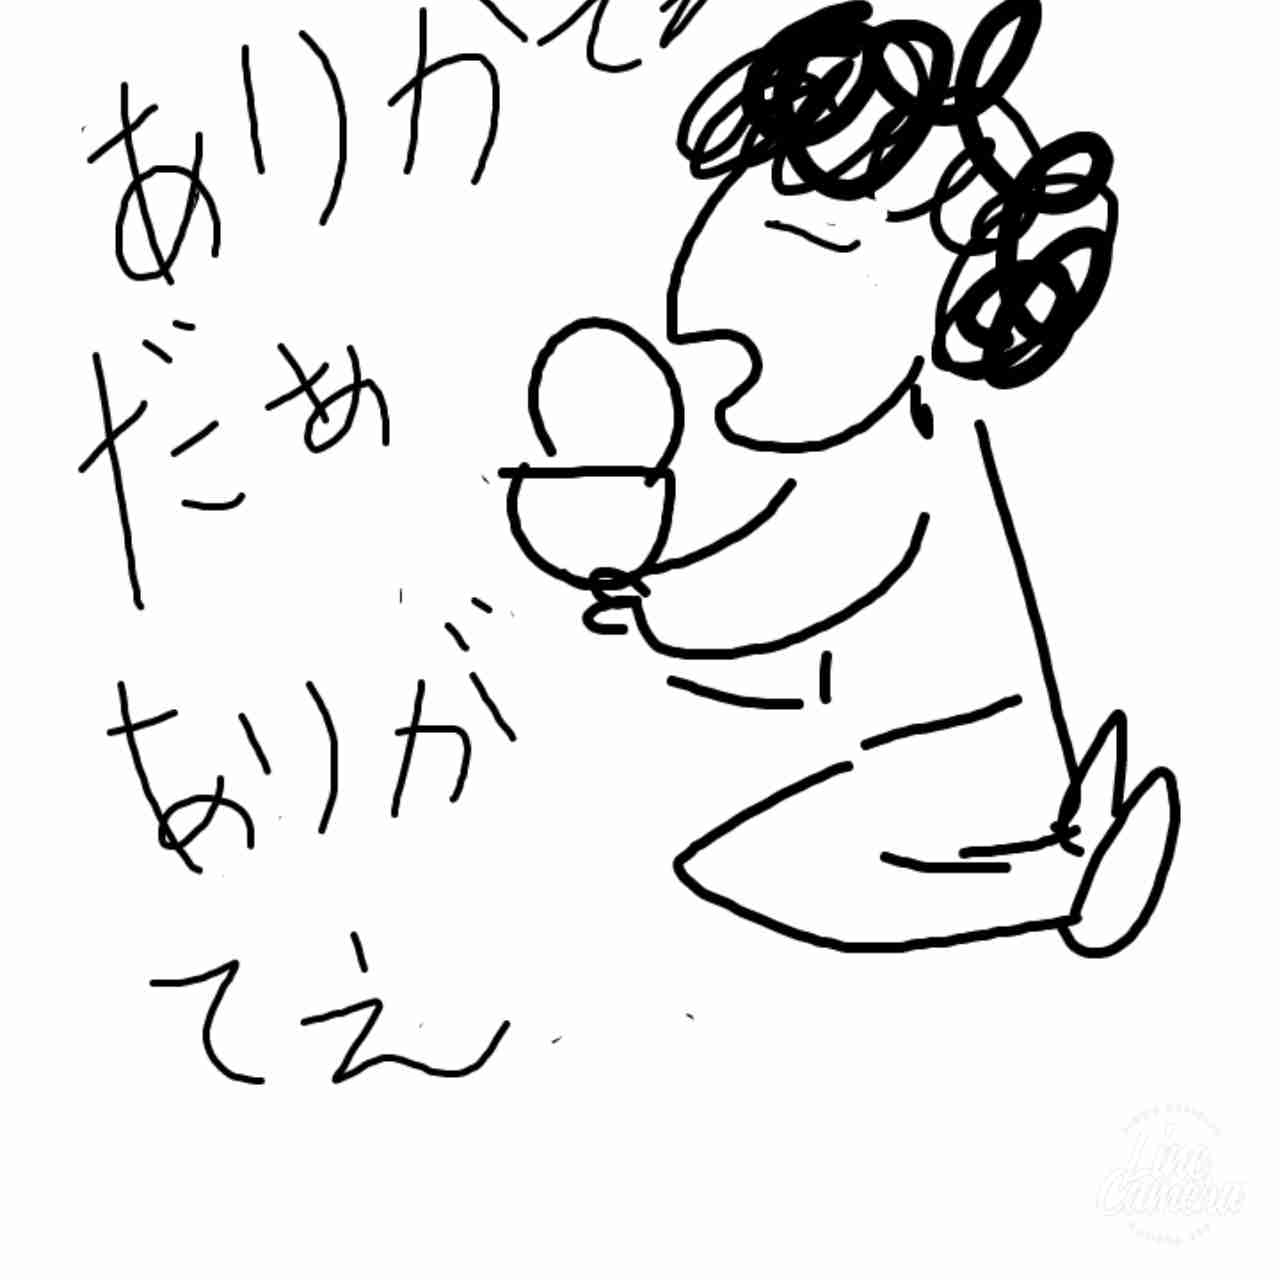 ありがて
だぁ
ありが
てえ
Line
Camera